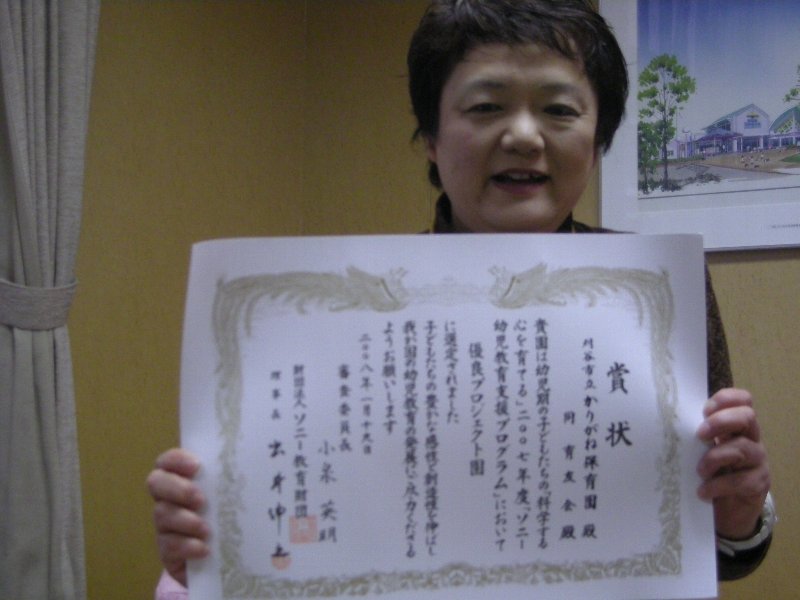 賞状
刈谷市立かりがね保育園 殿
同 育友会 殿
貴園は幼児期の子どもたちの「科学する
心を育てる」二〇〇七年度「ソニー
幼児教育支援プログラム」において
優良プロジェクト園
に選定されました
子どもたちの豊かな感性と創造性を伸ばし
我が国の幼児教育の発展にご尽力くださる
ようお願いします
二〇〇八年一月十九日
審査委員長 小泉英明
財団法人ソニー教育財団
理事長 出井伸之